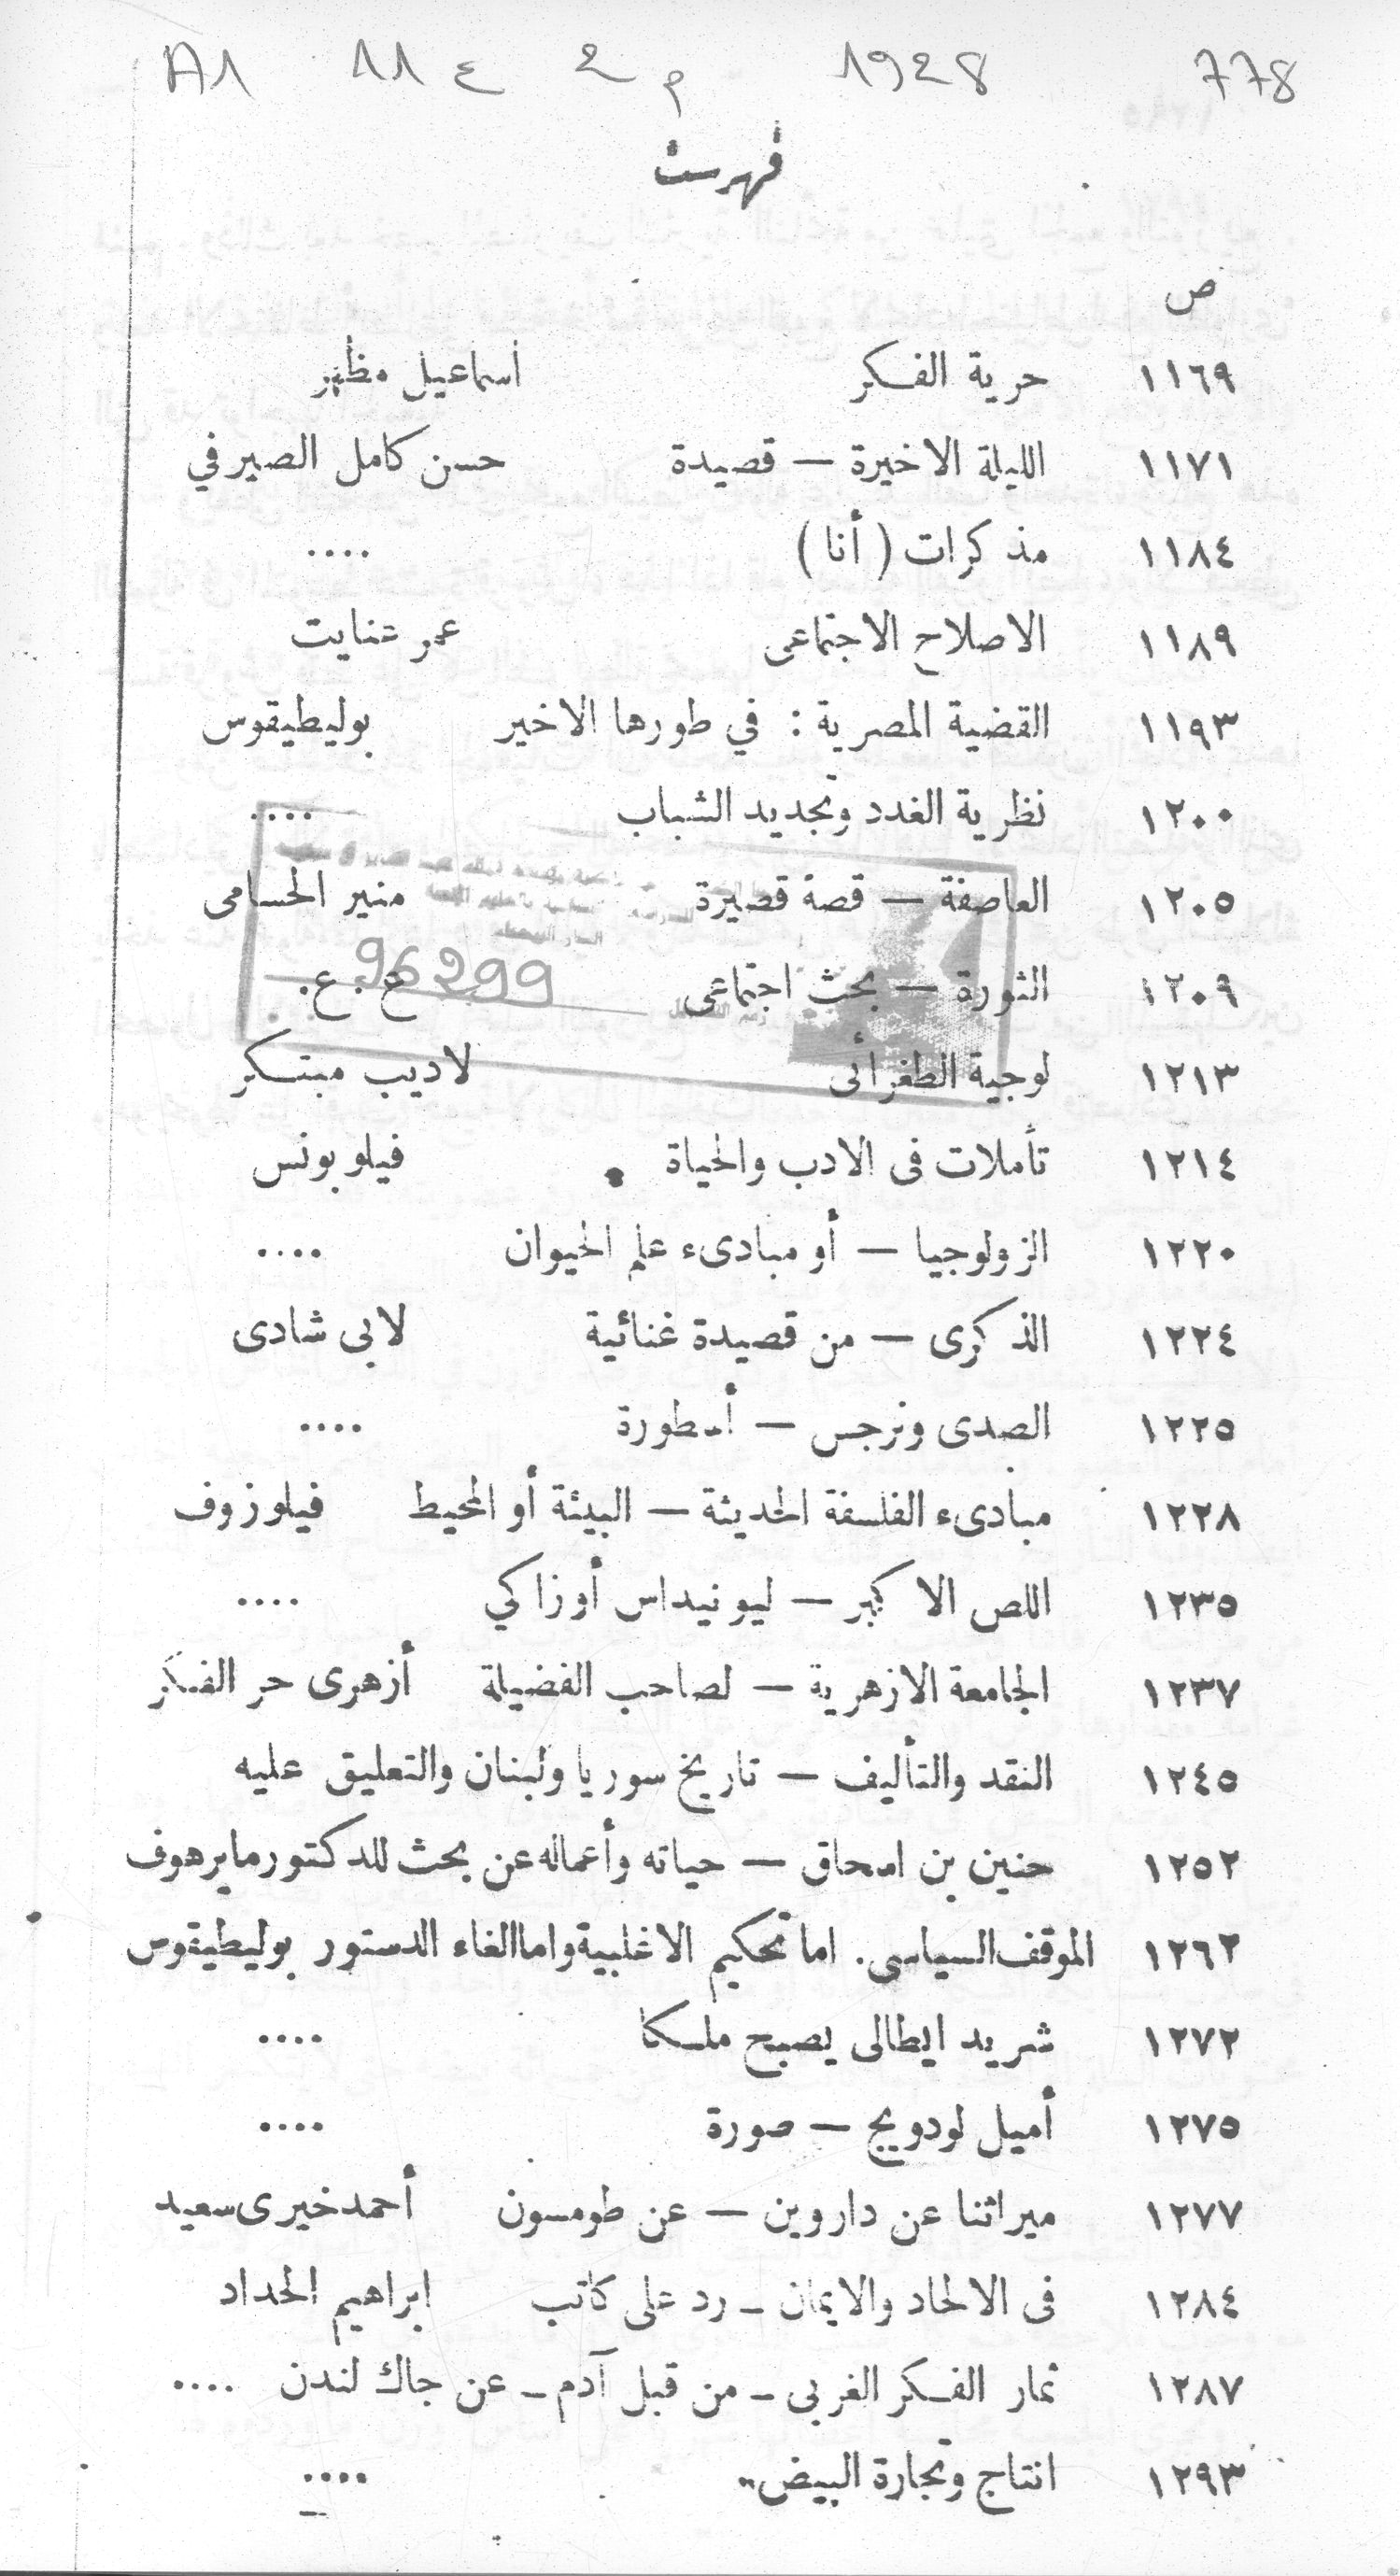 778 1928 م 2 ع 11 A1
فهرست
ص
١١٦٩ حرية الفكر أسماعيل مظهر
١١٧١ الليلة الاخيرة — قصيدة حسن كامل الصيرفي
١١٨٤ مذكرات ( أنا ) ....
١١٨٩ الاصلاح الاجتماعى عمر عنايت
١١٩٣ القضية المصرية : في طورها الاخير بوليطيقوس
١٢٠٠ نظرية الغدد وتجديد الشباب ....
١٢٠٥ العاصفة — قصة قصيرة منير الحسامى
١٢٠٩ الثورة — بحث اجتماعى ع . ع.
96299
١٢١٣ لوجية الطغرائى لاديب مبتكر
١٢١٤ تأملات فى الادب والحياة فيلوبونس
١٢٢٠ الزولوجيا — أو مبادىء علم الحيوان ....
١٢٢٤ الذكرى — من قصيدة غنائية لابى شادى
١٢٢٥ الصدى ونرجس — أسطورة ....
١٢٢٨ مبادىء الفلسفة الحديثة — البيئة أو المحيط فيلوزوف
١٢٣٥ اللص الاكبر — ليونيداس أوزاكي ....
١٢٣٧ الجامعة الازهرية — لصاحب الفضيلة أزهرى حر الفكر
١٢٤٥ النقد والتأليف — تاريخ سوريا ولبنان والتعليق عليه
١٢٥٢ حنين بن اسحاق — حياته وأعماله عن بحث للدكتور مايرهوف
١٢٦٢ الموقف السياسى . اما تحكيم الاغلبية واما الغاء الدستور بوليطيقوس
١٢٧٢ شريد ايطالى يصبح ملكا ....
١٢٧٥ أميل لودويج — صورة ....
١٢٧٧ ميراثنا عن داروين — عن طومسون أحمد خيرى سعيد
١٢٨٤ فى الالحاد والايمان — رد على كاتب ابراهيم الحداد
١٢٨٧ ثمار الفكر الغربى — من قبل آدم — عن جاك لندن ....
١٢٩٣ انتاج وتجارة البيض ....